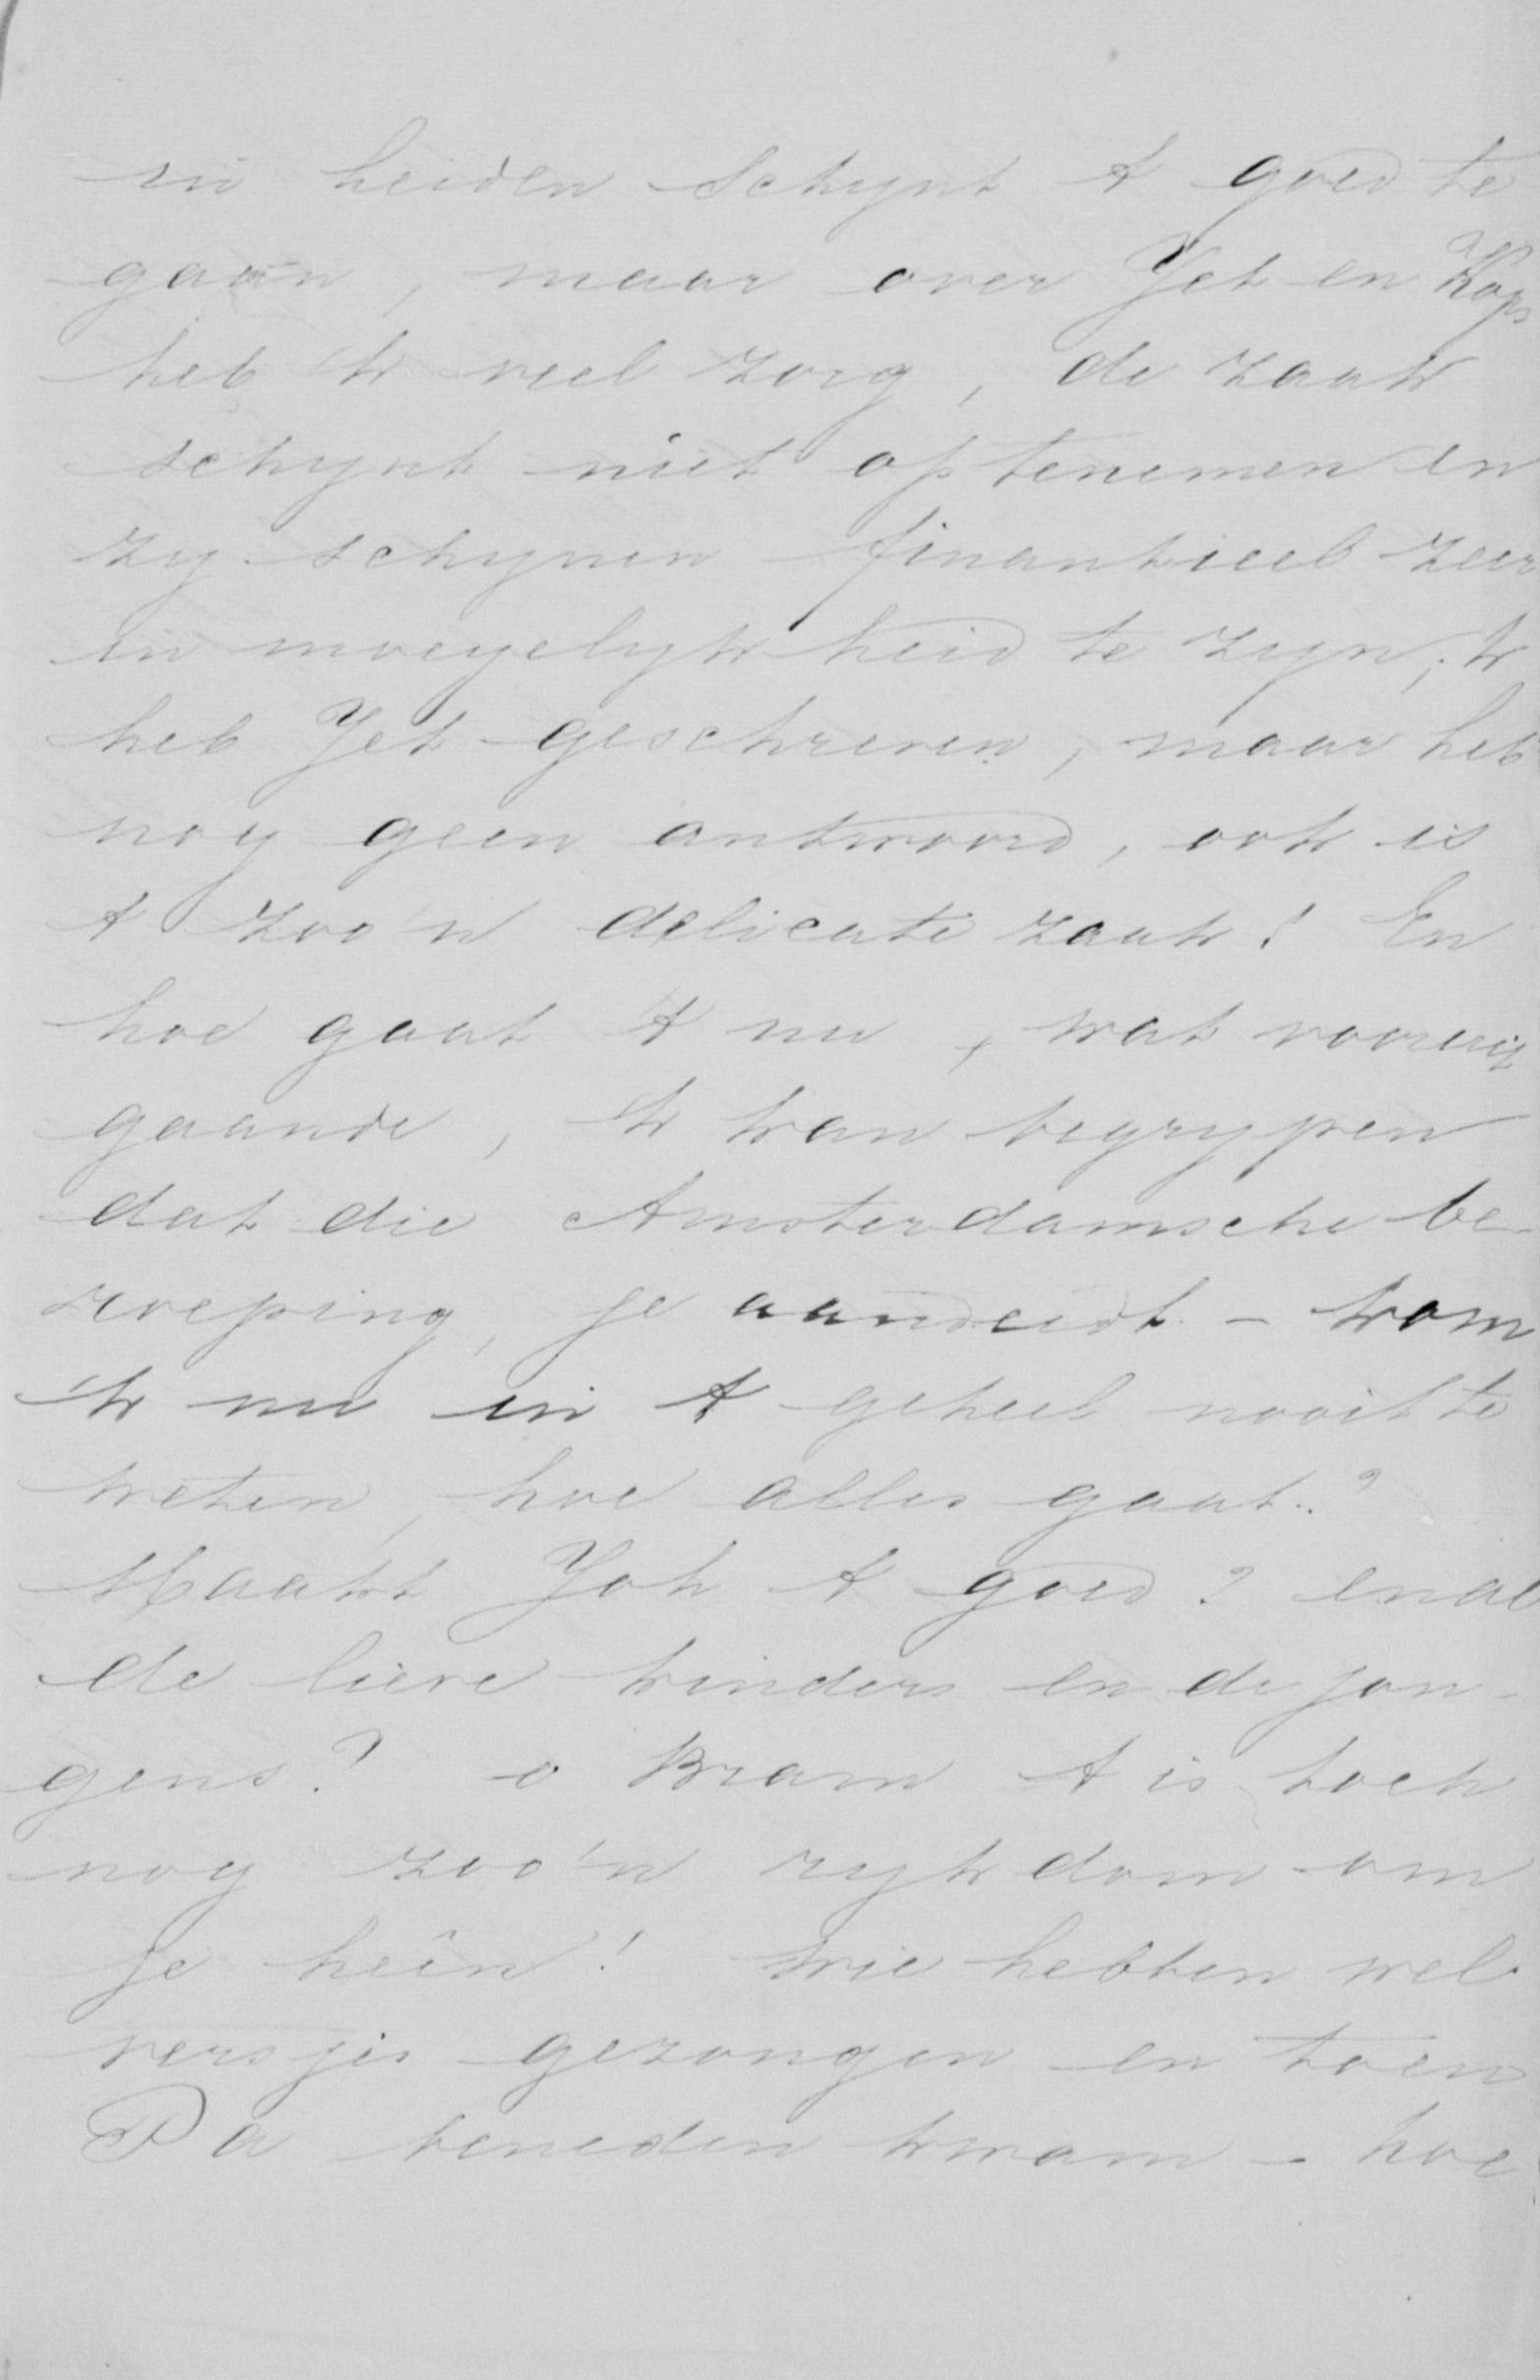 in heiden schynt 't goed te
gaan, maar over Jet en Kops
heb 'k veel zorg, de zaak
schynt niet op tenemen en
zy schynen finantieel zeer
in moeyelykheid te zyn, 'k
heb Jet geschreven, maar heb
nog geen antwoord, ook is
't zoo'n delicate zaak! En
hoe gaat 't nu, wat vooruit
gaande, 'k kan begrypen
dat die Amsterdamsche be-
roeping, je aan - kom
'k nu in 't geheel nooit te
weten, hoe alles gaat?
Maakt Joh 't goed? en al
de lieve kinders en de jon-
gens? o Bram 't is toch
nog zoo'n rykdom om
je heên! wie hebben wel
versjes gezongen en toen
Pa beneden kwam - hoe